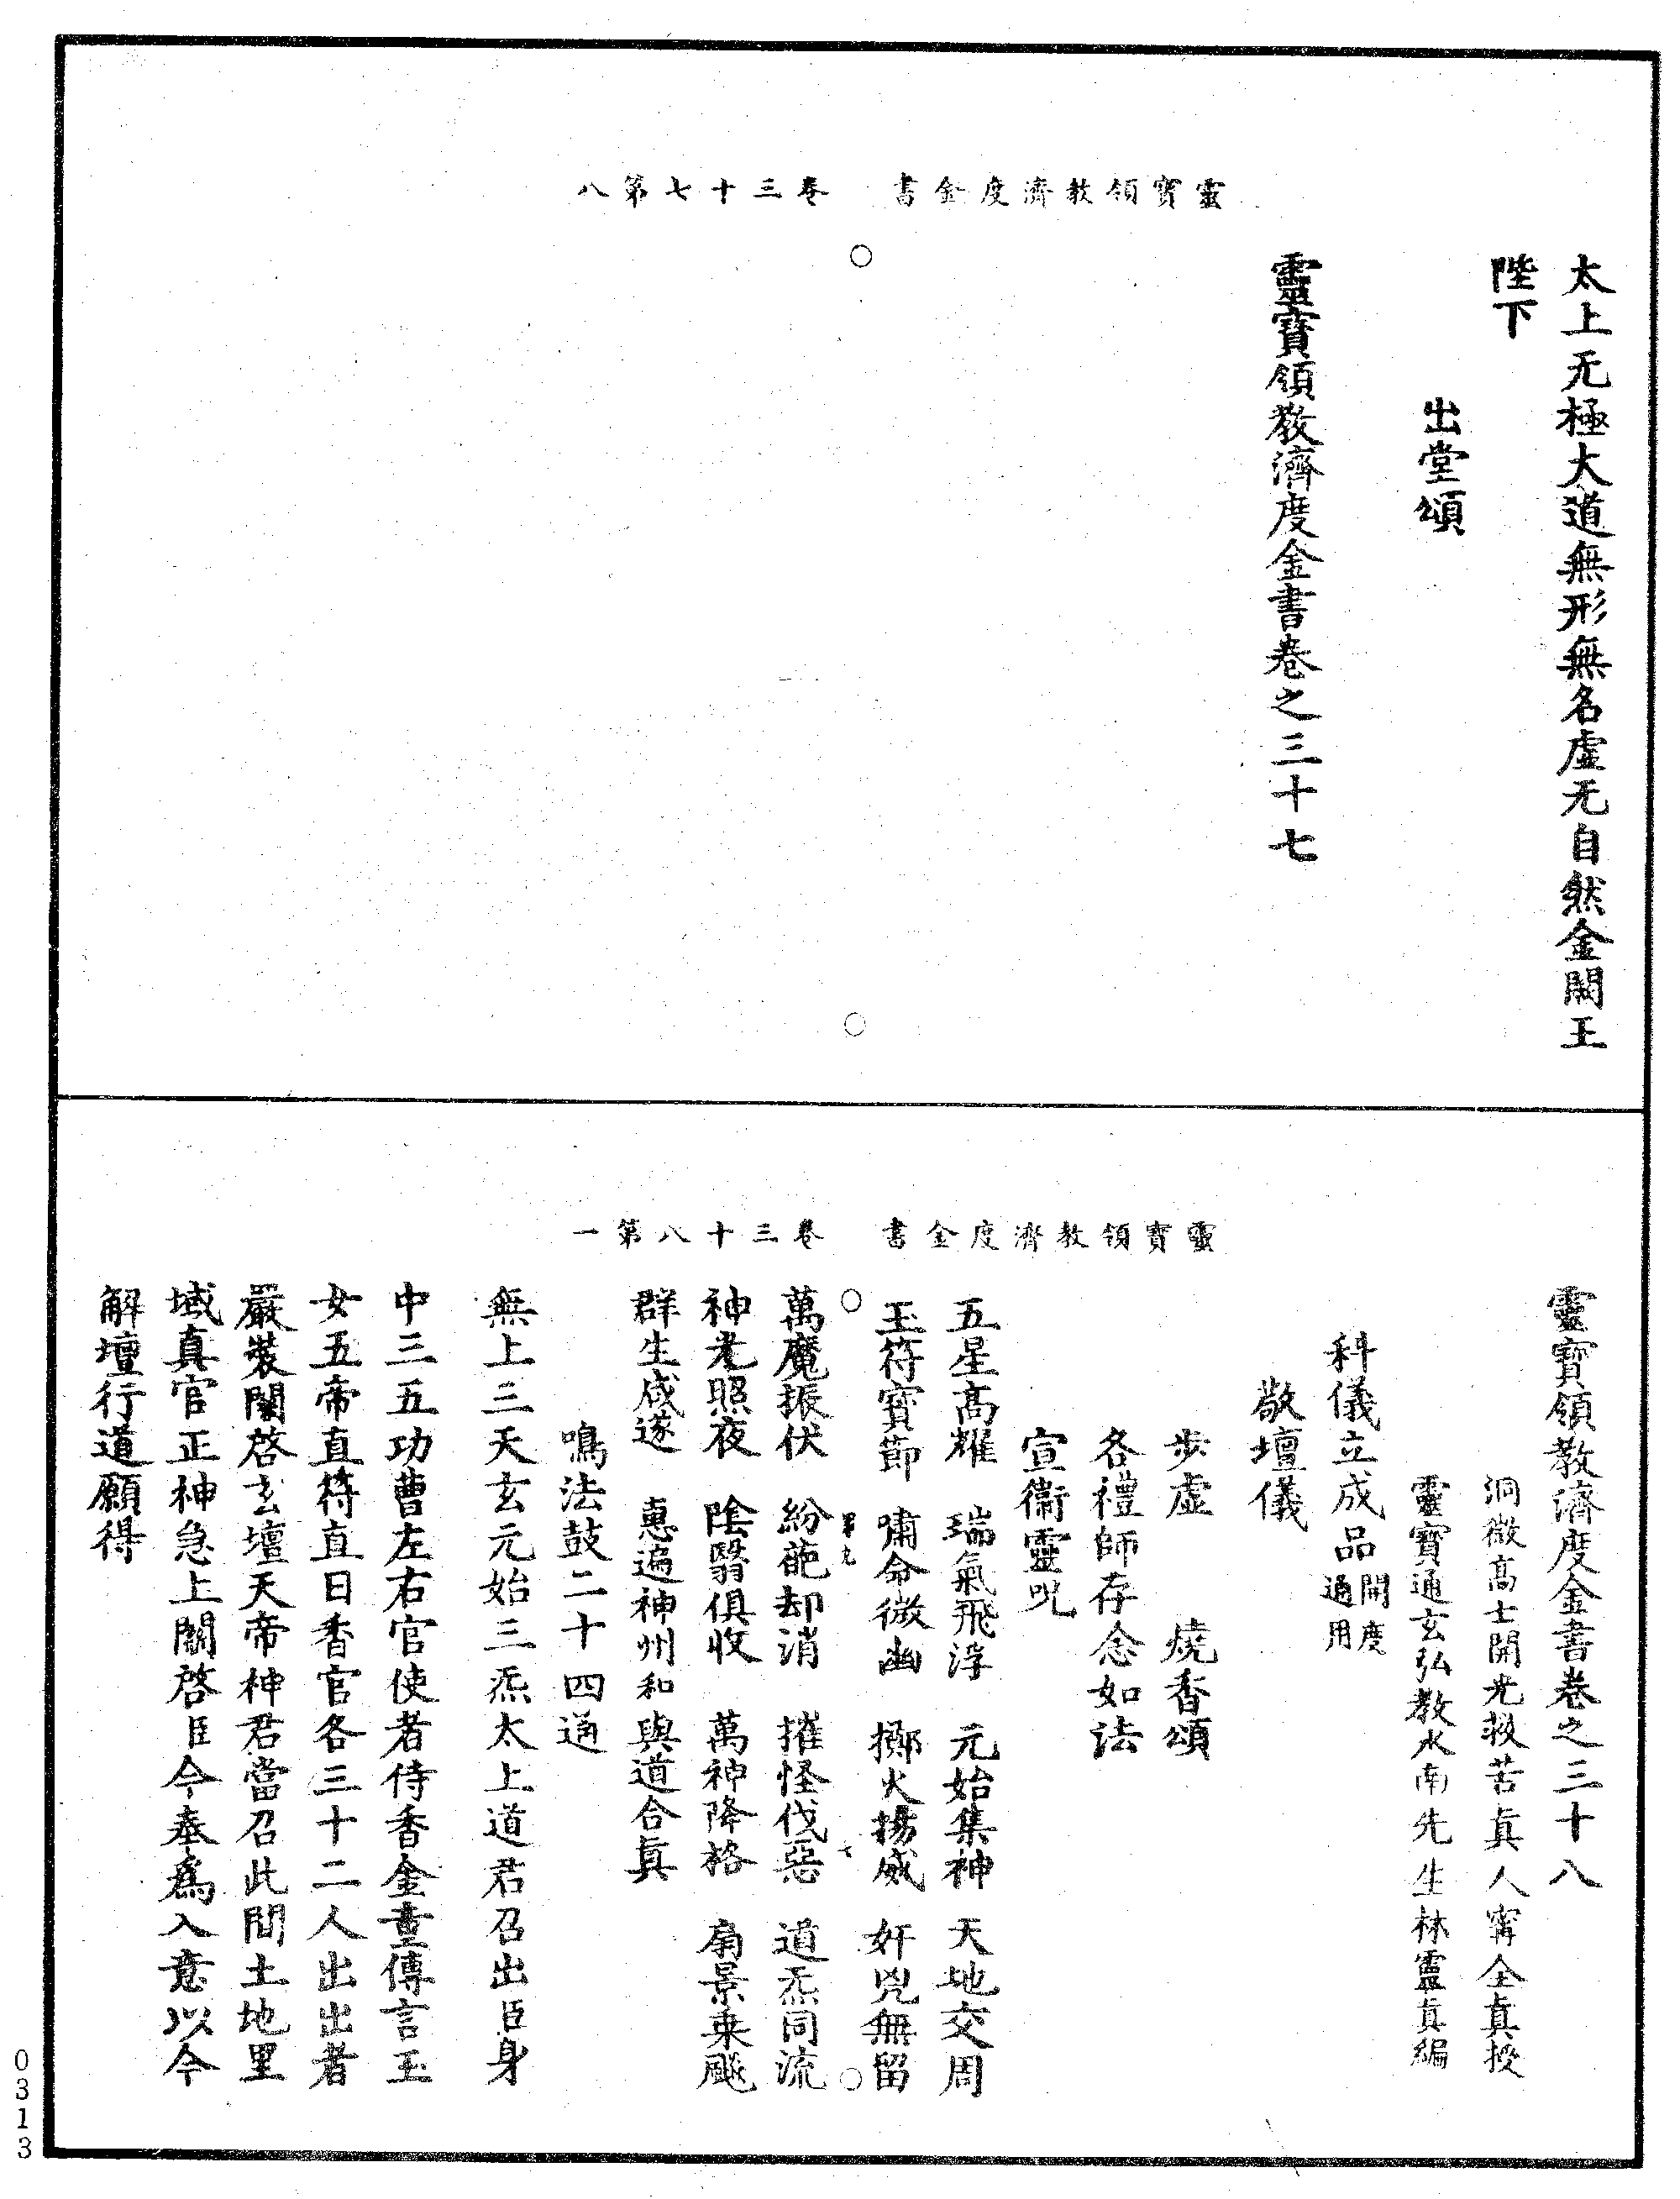 靈寶領教濟度金書　卷三十七第八
太上无極大道無形無名虛无自然金闕玉
陛下
出堂頌
靈寶領教濟度金書卷之三十七
靈寶領教濟度金書　卷三十八第一
靈寶領教濟度金書卷之三十八
洞微高士開光救苦真人甯全真授
靈寶通玄弘教水南先生林靈真編
科儀立成品開度通用
敬壇儀
步虛　燒香頌
各禮師存念如法
宣衛靈呪
五星高耀　瑞氣飛浮　元始集神　天地交周
玉符寶節　嘯命微幽　擲火揚威　奸兇無留
萬魔振伏　紛葩却消　摧怪伐惡　道炁同流
神光照夜　陰翳俱收　萬神降格　扃景乘飇
群生咸遂　惠遍神州和　與道合真
鳴法鼓二十四通
無上三天玄元始三炁太上道君召出臣身
中三五功曹左右官使者侍香金童傳言玉
女五帝直符直日香官各三十二人出出者
嚴裝關啓玄壇天帝神君當召此間土地里
域真官正神急上關啓臣今奉為入意以今
解壇行道願得
0313